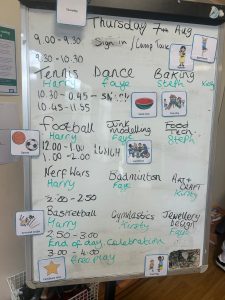 Thursday 7th Aug
9.00 - 9.30 Sign in / Camp Talk
9.30 - 10.30
Tennis Dance Baking
Harry Faye Steph
10.30 - 10.45 - Snack
10.45 - 11.55
Football Junk modelling Food Tech
Harry Faye Steph
12.00 - 1.00 LUNCH
1.00 - 2.00
Nerf Wars Badminton Art + Craft
Harry Faye Kirsty
2.00 - 2.50
Basketball Gymnastics Jewellery Design
Harry Kirsty Faye
2.50 - 3.00
End of day celebration
3.00 - 4.00
Free Play